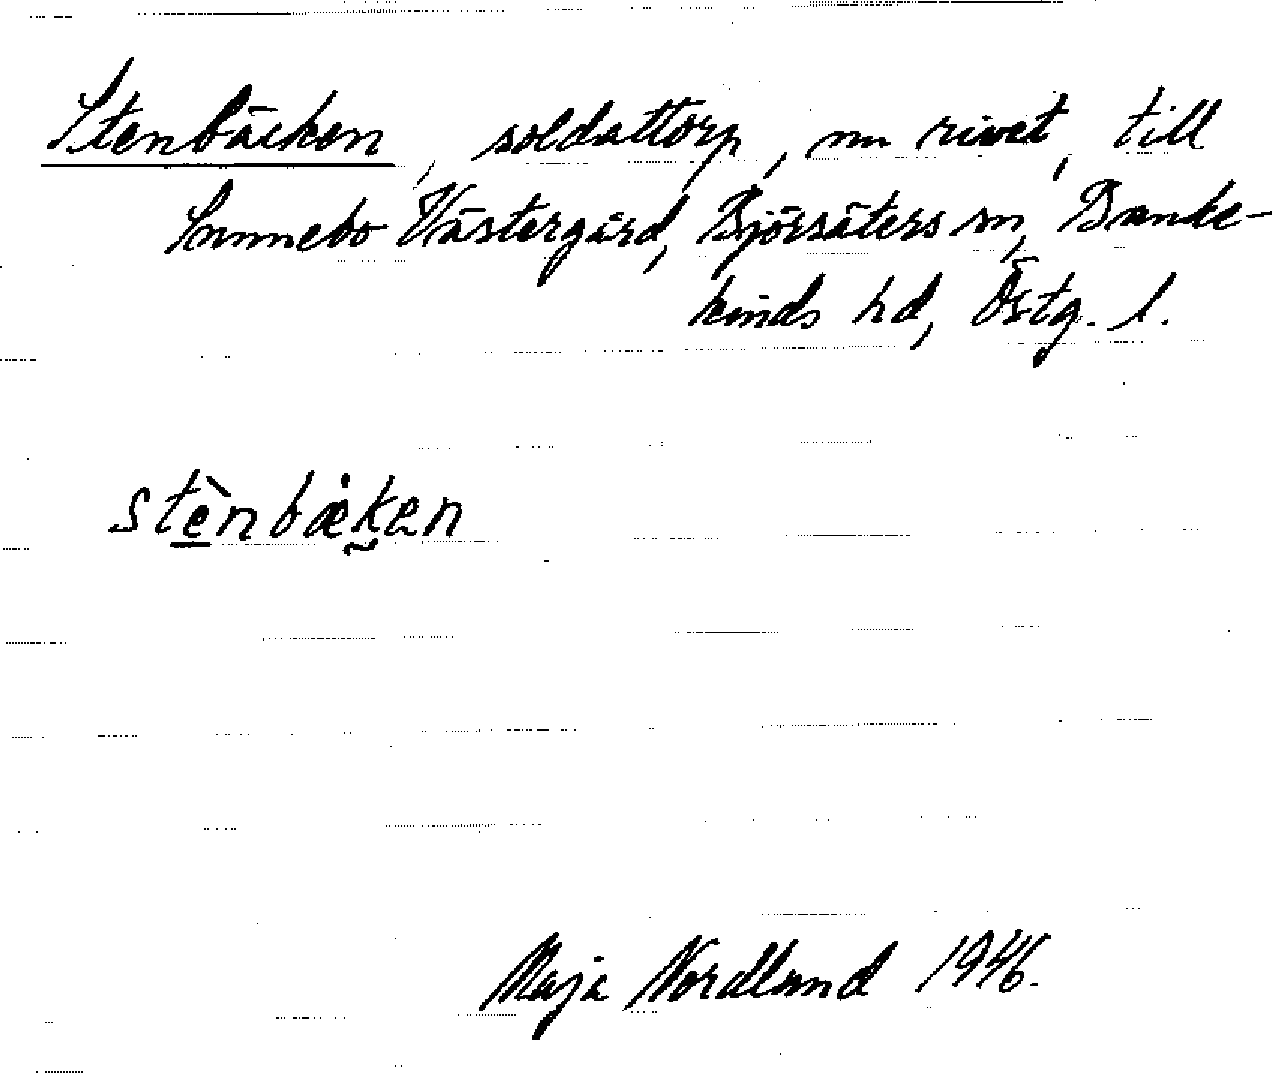 Stenbäcken, soldattorp, nu rivet, till
Sunnebo Västergård, Björsäters sn, Banke-
kinds hd, Östg. l.
stènbæken
Maja Nordlund 1946.